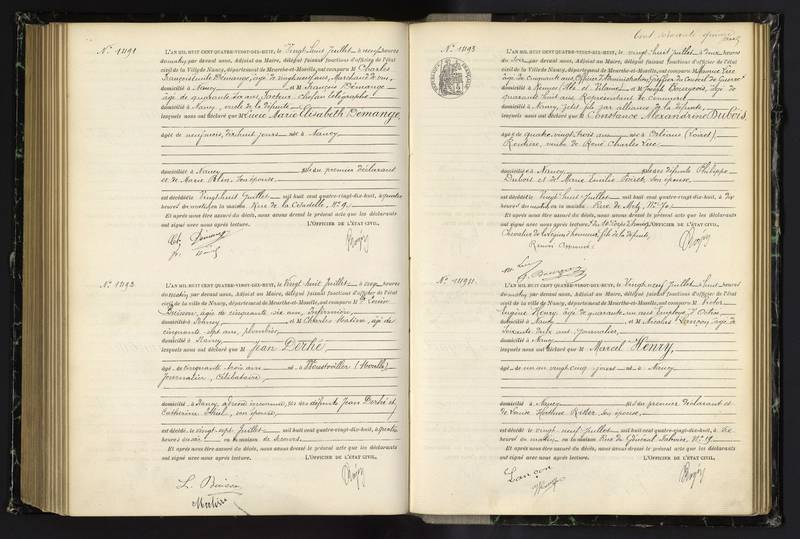 N° 1491
L'AN MIL HUIT CENT QUATRE-VINGT-DIX-HUIT, le Vingt huit Juillet à neuf heures
du matin, par devant nous, Adjoint au Maire, délégué faisant fonctions d'officier de l'état
civil de la Ville de Nancy, département de Meurthe-et-Moselle, ont comparu M Charles
Demange, âgé de vingt neuf ans, Marchand de vin,
domicilié à Nancy et M François Demange
âgé de quarante six ans, facteur
domicilié à Nancy, oncle de la défunte
lesquels nous ont déclaré que M Lucie Marie Elisabeth Demange,
âgée de neuf mois, dix huit jours née à Nancy
domiciliée à Nancy fille du premier déclarant
et de Marie son épouse
est décédée Vingt huit Juillet mil huit cent quatre-vingt-dix-huit, à quatre
heures du matin en la maison Rue de la Citadelle, N° 9.
Et après nous être assuré du décès, nous avons dressé le présent acte que les déclarants
ont signé avec nous après lecture. L'OFFICIER DE L'ÉTAT CIVIL,
N° 1492
L'AN MIL HUIT CENT QUATRE-VINGT-DIX-HUIT, le Vingt huit Juillet à cinq heures
du matin, par devant nous, Adjoint au Maire, délégué faisant fonctions d'officier de l'état
civil de la Ville de Nancy, département de Meurthe-et-Moselle, ont comparu M
Buisson, âgé de cinquante six ans, Infirmier
domicilié à Nancy et M Charles Mathieu, âgé de
cinquante sept ans, plombier
domicilié à Nancy
lesquels nous ont déclaré que M Jean Derhé,
âgé de cinquante trois ans né à Woustviller (Moselle)
Journalier, Célibataire,
domicilié à Nancy, fils des défunts Jean Derhé et
Catherine son épouse
est décédé le vingt sept Juillet mil huit cent quatre-vingt-dix-huit, à quatre
heures du soir en la maison de Secours
Et après nous être assuré du décès, nous avons dressé le présent acte que les déclarants
ont signé avec nous après lecture. L'OFFICIER DE L'ÉTAT CIVIL,
L. Buisson
Cent soixante
N° 1493
RÉPUBLIQUE FRANÇAISE
L'AN MIL HUIT CENT QUATRE-VINGT-DIX-HUIT, le vingt huit Juillet à deux heures
du soir par devant nous, Adjoint au Maire, délégué faisant fonctions d'officier de l'état
civil de la Ville de Nancy, département de Meurthe-et-Moselle, ont comparu M
âgé de Cinquante ans Officier d'Administration Greffier du Conseil de Guerre
domicilié à Rennes (Ille et Vilaine) et M Joseph Bourgeois, âgé de
quarante huit ans Représentant de Commerce
domicilié à Nancy, petit fils par alliance de la défunte
lesquels nous ont déclaré que Constance Alexandrine Dubois,
âgée de quatre vingt trois ans née à Orléans (Loiret)
Rentière, veuve de René Charles
domiciliée à Nancy fille des défunts Philippe
Dubois et de Marie Emilie son épouse
est décédée Vingt huit Juillet mil huit cent quatre-vingt-dix-huit, à dix
heures du matin en la maison Rue de Metz, N° 70
Et après nous être assuré du décès, nous avons dressé le présent acte que les déclarants
ont signé avec nous après lecture. L'OFFICIER DE L'ÉTAT CIVIL,
Chevalier de la Légion d'honneur, fils de la défunte
N° 1494
L'AN MIL HUIT CENT QUATRE-VINGT-DIX-HUIT, le Vingt neuf Juillet à huit heures
du matin, par devant nous, Adjoint au Maire, délégué faisant fonctions d'officier de l'état
civil de la Ville de Nancy, département de Meurthe-et-Moselle, ont comparu M Victor
Eugène Henry, âgé de quarante un ans Employé d'Octroi
domicilié à Nancy et M Nicolas Lançon, âgé de
soixante deux ans Journalier
domicilié à Nancy
lesquels nous ont déclaré que M Marcel Henry,
âgé de un an vingt cinq jours né à Nancy
domicilié à Nancy fils du premier déclarant et
de Hortense son épouse
est décédé le vingt neuf Juillet mil huit cent quatre-vingt-dix-huit, à six
heures du matin en la maison Rue du Général Fabvier, N° 19
Et après nous être assuré du décès, nous avons dressé le présent acte que les déclarants
ont signé avec nous après lecture. L'OFFICIER DE L'ÉTAT CIVIL,
Lançon